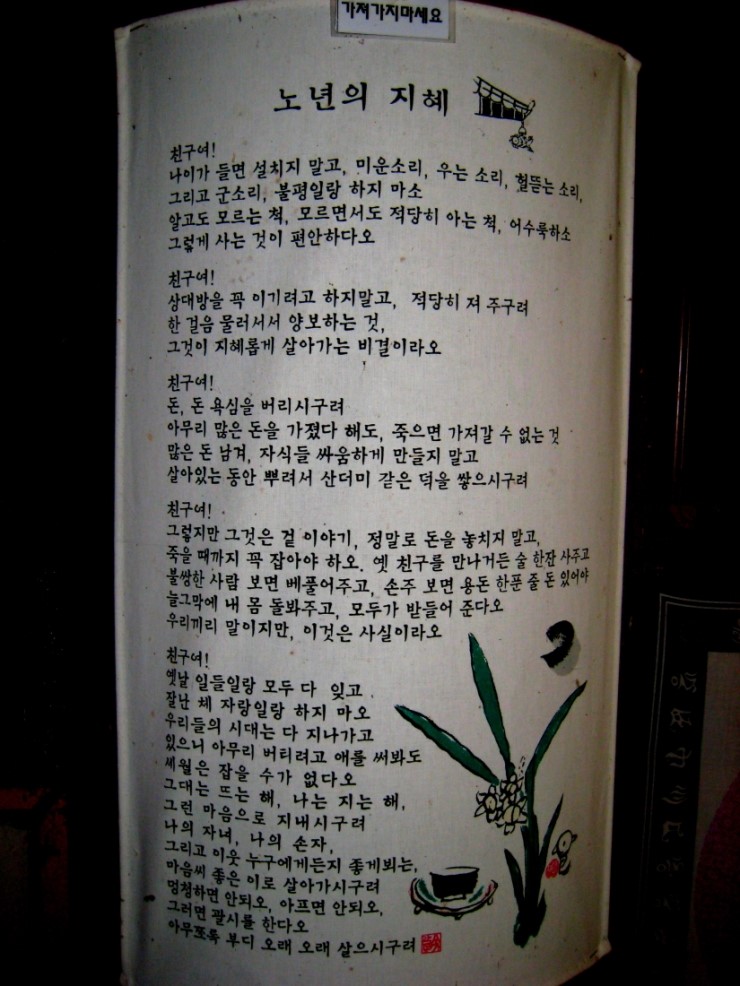 가져가지마세요
노년의 지혜
친구여!
나이가 들면 설치지 말고, 미운소리, 우는 소리, 헐뜯는 소리,
그리고 군소리, 불평일랑 하지 마소
알고도 모르는 척, 모르면서도 적당히 아는 척, 어수룩하소
그렇게 사는 것이 편안하다오
친구여!
상대방을 꼭 이기려고 하지말고, 적당히 져 주구려
한 걸음 물러서서 양보하는 것,
그것이 지혜롭게 살아가는 비결이라오
친구여!
돈, 돈 욕심을 버리시구려
아무리 많은 돈을 가졌다 해도, 죽으면 가져갈 수 없는 것
많은 돈 남겨, 자식들 싸움하게 만들지 말고
살아있는 동안 뿌려서 산더미 같은 덕을 쌓으시구려
친구여!
그렇지만 그것은 겉 이야기, 정말로 돈을 놓치지 말고,
죽을 때까지 꼭 잡아야 하오. 옛 친구를 만나거든 술 한잔 사주고
불쌍한 사람 보면 베풀어주고, 손주 보면 용돈 한푼 줄 돈 있어야
늘그막에 내 몸 돌봐주고, 모두가 받들어 준다오
우리끼리 말이지만, 이것은 사실이라오
친구여!
옛날 일들일랑 모두 다 잊고
잘난 체 자랑일랑 하지 마오
우리들의 시대는 다 지나가고
있으니 아무리 버티려고 애를 써봐도
세월은 잡을 수가 없다오
그대는 뜨는 해, 나는 지는 해,
그런 마음으로 지내시구려
나의 자녀, 나의 손자,
그리고 이웃 누구에게든지 좋게뵈는,
마음씨 좋은 이로 살아가시구려
멍청하면 안되오, 아프면 안되오,
그러면 괄시를 한다오
아무쪼록 부디 오래 오래 살으시구려